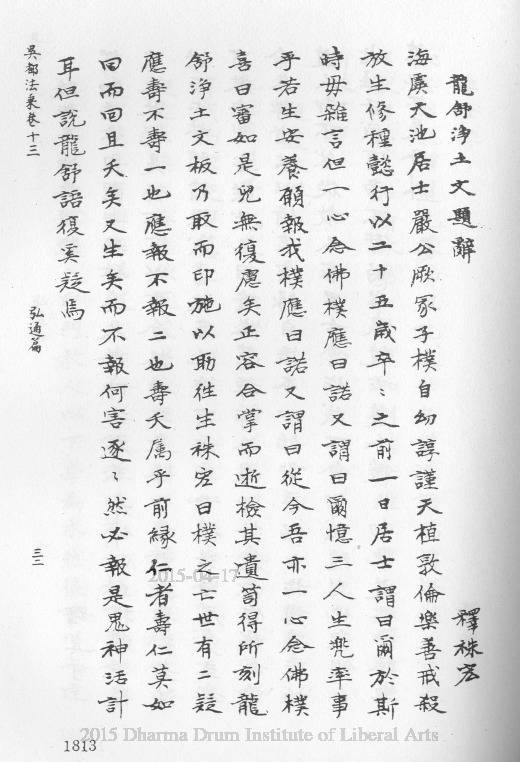 龍舒淨土文題辭
釋袾宏
海虞天池居士嚴公厥冢子樸自幼諄謹天植敦倫樂善戒殺
放生修種懿行以二十五歲卒〻之前一日居士謂曰爾於斯
時毋雜言但一心念佛樸應曰諾又謂曰爾憶三人生兜率事
乎若生安養願報我樸應曰諾又謂曰從今吾亦一心念佛樸
喜曰審如是兒無復慮矣正容合掌而逝檢其遺笥得所刻龍
舒淨土文板乃取而印施以助往生袾宏曰樸之亡世有二疑
應壽不壽一也應報不報二也壽夭属乎前緣仁者壽仁莫如
回而回且夭矣又生矣而不報何害逐〻然必報是鬼神活計
耳但說龍舒語復奚疑焉
吳都法乘卷十三
弘通篇
三二
1813
2015-04-17
2015 Dharma Drum Institute of Liberal Arts